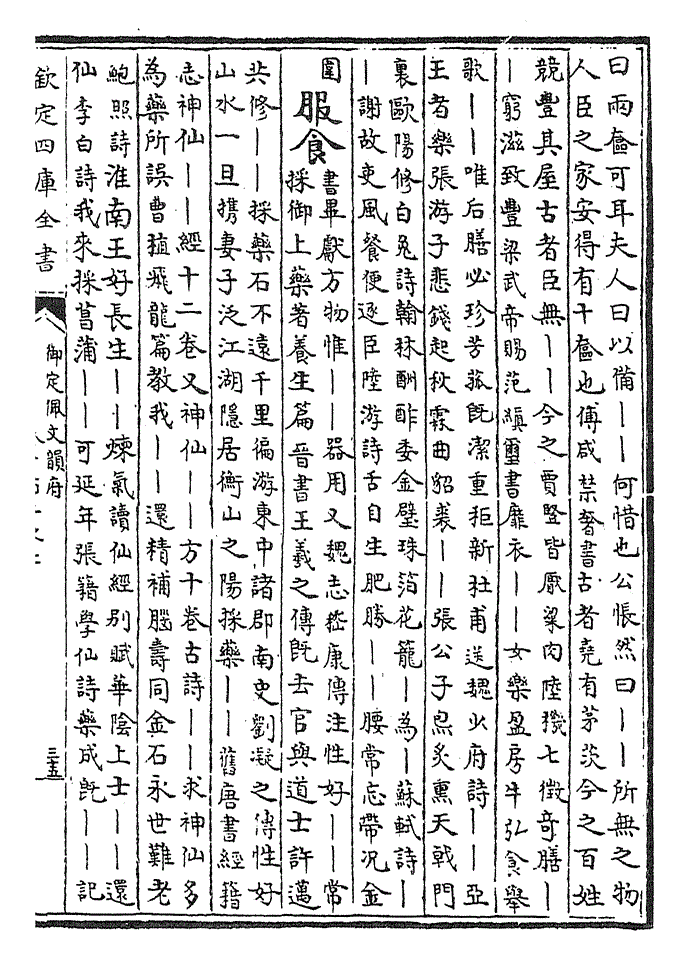 曰兩奩可耳夫人曰以備｜｜何惜也公悵然曰｜｜所無之物
人臣之家安得有十奩也傅咸禁奢書古者堯有茅茨今之百姓
競豐其屋古者臣無｜｜今之賈豎皆厭粱肉陸機七徵奇膳｜
｜窮滋致豐梁武帝賜范縝璽書靡衣｜｜女樂盈房牛弘食舉
歌｜｜唯后膳必珍芳菰既潔重秬新杜甫送魏少府詩｜｜亞
王者樂張游子悲錢起秋霖曲貂裘｜｜張公子炰炙熏天戟門
裏歐陽修白兔詩翰林酬酢委金璧珠箔花籠｜為｜蘇軾詩｜
｜謝故吏風餐便逐臣陸游詩舌自生肥勝｜｜腰常忘帶况金
圍
服食
書畢獻方物惟｜｜器用又魏志嵇康傳注性好｜｜常
採御上藥著養生篇晉書王羲之傳既去官與道士許邁
共修｜｜採藥石不遠千里徧游東中諸郡南史劉凝之傳性好
山水一旦攜妻子泛江湖隱居衡山之陽採藥｜｜舊唐書經籍
志神仙｜｜經十二卷又神仙｜｜方十卷古詩｜｜求神仙多
為藥所誤曹植飛龍篇教我｜｜還精補腦壽同金石永世難老
鮑照詩淮南王好長生｜｜煉氣讀仙經別賦華陰上士｜｜還
仙李白詩我來採菖蒲｜｜可延年張籍學仙詩藥成既｜｜記
欽定四庫全書
御定佩文韻府
三五